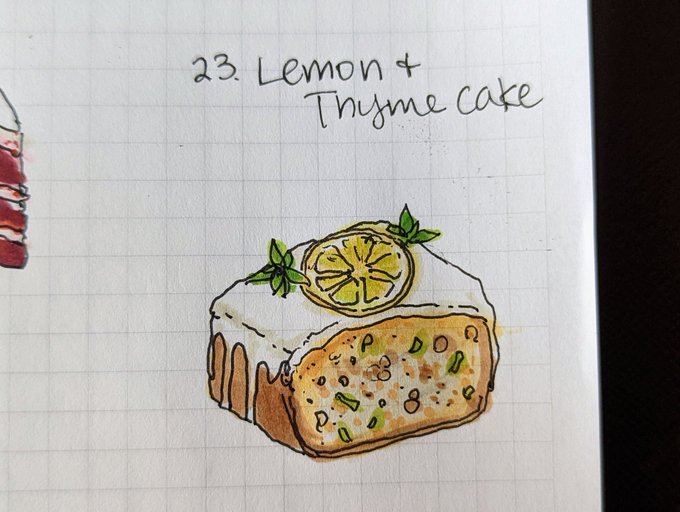 23. Lemon +
Thyme cake